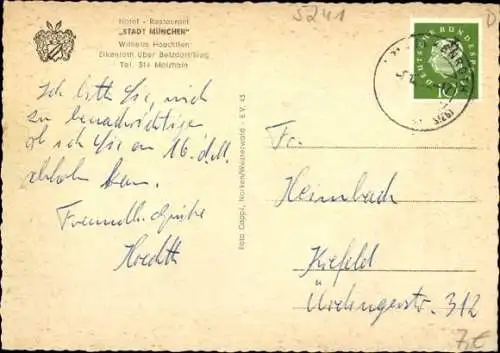 5241
Hotel - Restaurant
"STADT MÜNCHEN"
Wilhelm Hoechtlen
Elkenroth über Betzdorf/Sieg
Tel. 514 Malzhain
DEUTSCHE BUNDESPOST
10
Ich bitte Sie, mich
zu benachrichtigen
ob ich Sie am 16. d.M.
abholen kann.
Freundl. Grüße
Foto Cappi, Norken/Westerwald - E.V. 45
Fr.
Heimbach
Krefeld
Ürdingerstr. 312
7,€